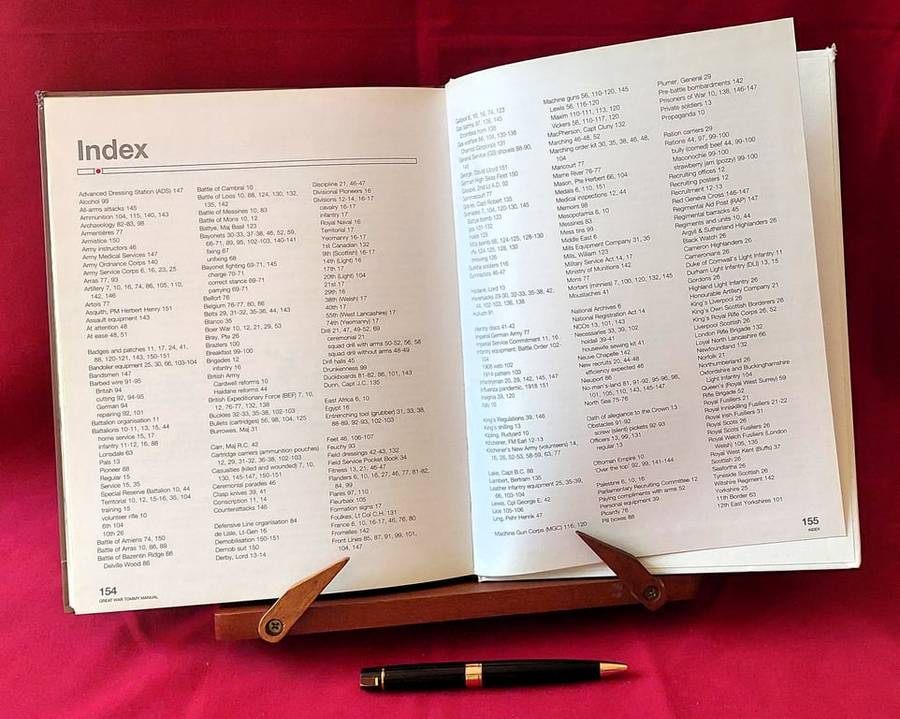 Index
Advanced Dressing Station (ADS) 147
Alcohol 99
All-arms attacks 145
Ammunition 104, 115, 140, 143
Archaeology 82-83, 98
Armentières 77
Armistice 150
Army instructors 46
Army Medical Services 147
Army Ordnance Corps 140
Army Service Corps 6, 16, 23, 25
Arras 77, 93
Artillery 7, 10, 16, 74, 86, 105, 110,
142, 146
Artois 77
Asquith, PM Herbert Henry 151
Assault equipment 143
At attention 48
At ease 48, 51
Badges and patches 11, 17, 24, 41,
88, 120-121, 143, 150-151
Bandolier equipment 25, 30, 66, 103-104
Bandsmen 147
Barbed wire 91-95
British 94
cutting 92, 94-95
German 94
repairing 92, 101
Battalion organisation 11
Battalions 10-11, 13, 15, 44
home service 15, 17
infantry 11-12, 16, 88
Lonsdale 63
Pals 13
Pioneer 88
Regular 15
Service 15, 35
Special Reserve Battalion 10, 44
Territorial 10, 12, 15-16, 35, 104
training 15
volunteer rifle 10
6th 104
10th 26
Battle of Amiens 74, 150
Battle of Arras 10, 86, 89
Battle of Bazentin Ridge 86
Delville Wood 86
Battle of Cambrai 10
Battle of Loos 10, 88, 124, 130, 132,
135, 142
Battle of Messines 10, 83
Battle of Mons 10, 12
Battye, Maj Basil 123
Bayonets 30-33, 37-38, 46, 52, 59,
66-71, 89, 95, 102-103, 140-141
fixing 67
unfixing 68
Bayonet fighting 69-71, 145
charge 70-71
correct stance 69-71
parrying 69-71
Belfort 76
Belgium 76-77, 80, 86
Belts 29, 31-32, 35-36, 44, 143
Blanco 35
Boer War 10, 12, 21, 29, 53
Bray, Pte 26
Braziers 100
Breakfast 99-100
Brigades 12
infantry 16
British Army
Cardwell reforms 10
Haldane reforms 44
British Expeditionary Force (BEF) 7, 10,
12, 76-77, 132, 138
Buckles 32-33, 35-38, 102-103
Bullets (cartridges) 56, 98, 104, 125
Burrowes, Maj 31
Carr, Maj R.C. 42
Cartridge carriers (ammunition pouches)
12, 29, 31-32, 36-38, 102-103
Casualties (killed and wounded) 7, 10,
130, 145-147, 150-151
Ceremonial parades 46
Clasp knives 39, 41
Conscription 11, 14
Counterattacks 146
Defensive Line organisation 84
de Lisle, Lt-Gen 16
Demobilisation 150-151
Demob suit 150
Derby, Lord 13-14
Discipline 21, 46-47
Divisional Pioneers 16
Divisions 12-14, 16-17
cavalry 16-17
infantry 17
Royal Naval 16
Territorial 17
Yeomanry 16-17
1st Canadian 132
9th (Scottish) 16-17
14th (Light) 16
17th 17
20th (Light) 104
21st 17
29th 16
38th (Welsh) 17
40th 17
55th (West Lancashire) 17
74th (Yeomanry) 17
Drill 21, 47, 49-52, 69
ceremonial 21
squad drill with arms 50-52, 56, 58
squad drill without arms 48-49
Drill halls 45
Drunkenness 99
Duckboards 81-82, 86, 101, 143
Dunn, Capt J.C. 135
East Africa 6, 10
Egypt 16
Entrenching tool (grubber) 31, 33, 38,
88-89, 92-93, 102-103
Feet 46, 106-107
Feuchy 93
Field dressings 42-43, 132
Field Service Pocket Book 34
Fitness 13, 21, 46-47
Flanders 6, 10, 16, 27, 46, 77, 81-82,
84, 99
Flares 97, 110
Fleurbaix 105
Formation signs 17
Foulkes, Lt Col C.H. 131
France 6, 10, 16-17, 46, 76, 80
Fromelles 142
Front Lines 85, 87, 91, 99, 101,
104, 147
154
GREAT WAR TOMMY MANUAL
Gas alarms 97, 136, 145
George, David Lloyd 151
German High Seas Fleet 150
Gommecourt 77
Graves, Capt Robert 135
Gumboots
Gymnastics 46-47
Haldane, Lord 10
Identity discs 41-42
Imperial German Army 77
Imperial Service Commitment 11, 16
Infantry equipment: Battle Order 102-
104
1908 web 102
1914 pattern 103
Infantryman 20, 29, 142, 145, 147
Influenza pandemic, 1918 151
Insignia 39, 120
Italy 10
King's Regulations 39, 146
King's shilling 13
Kipling, Rudyard 10
Kitchener, FM Earl 12-13
Kitchener's New Army (volunteers) 14,
16, 28, 52-53, 58-59, 63, 77
Lake, Capt B.C. 88
Lambert, Bertram 135
Leather infantry equipment 25, 35-39,
66, 103-104
Lewis, Cpl George E. 42
Lice 105-106
Ling, Pehr Henrik 47
Machine Gun Corps (MGC) 116, 120
Machine guns 56, 110-120, 145
Lewis 56, 116-120
Maxim 110-111, 113, 120
Vickers 56, 110-117, 120
MacPherson, Capt Cluny 132
Marching 46-48, 52
Marching order kit 30, 35, 38, 46, 48,
104
Maricourt 77
Marne River 76-77
Mason, Pte Herbert 66, 104
Medals 6, 110, 151
Medical inspections 12, 44
Memoirs 98
Mesopotamia 6, 10
Messines 83
Mess tins 99
Middle East 6
Mills Equipment Company 31, 35
Mills, William 123
Military Service Act 14, 17
Ministry of Munitions 142
Mons 77
Mortars (minnies) 7, 100, 132, 145
Moustaches 41
National Archives 6
National Registration Act 14
NCOs 13, 101, 143
Necessaries 33, 39, 102
holdall 39-41
housewife sewing kit 41
Neuve Chapelle 142
New recruits 20, 44-48
efficiency expected 46
Nieuport 86
No-man's-land 81, 91-92, 95-96, 98,
101, 105, 110, 143, 145-147
North Sea 75-76
Oath of allegiance to the Crown 13
Obstacles 91-92
screw (silent) pickets 92-93
Officers 13, 99, 131
regular 13
Ottoman Empire 10
'Over the top' 92, 99, 141-144
Palestine 6, 10, 16
Parliamentary Recruiting Committee 12
Paying compliments with arms 52
Personal equipment 39
Picardy 76
Pill boxes 88
Plumer, General 29
Pre-battle bombardments 142
Prisoners of War 10, 138, 146-147
Private soldiers 13
Propaganda 10
Ration carriers 29
Rations 44, 97, 99-100
bully (corned) beef 44, 99-100
Maconochie 99-100
strawberry jam (pozzy) 99-100
Recruiting offices 12
Recruiting posters 12
Recruitment 12-13
Red Geneva Cross 146-147
Regimental Aid Post (RAP) 147
Regimental barracks 45
Regiments and units 10, 44
Argyll & Sutherland Highlanders 26
Black Watch 26
Cameron Highlanders 26
Cameronians 26
Duke of Cornwall's Light Infantry 11
Durham Light Infantry (DLI) 13, 15
Gordons 26
Highland Light Infantry 26
Honourable Artillery Company 21
King's Liverpool 26
King's Own Scottish Borderers 26
King's Royal Rifle Corps 26, 52
Liverpool Scottish 26
London Rifle Brigade 132
Loyal North Lancashire 66
Newfoundland 132
Norfolk 21
Northumberland 26
Oxfordshire and Buckinghamshire
Light Infantry 104
Queen's (Royal West Surrey) 59
Rifle Brigade 52
Royal Fusiliers 21
Royal Inniskilling Fusiliers 21-22
Royal Irish Fusiliers 31
Royal Scots 26
Royal Scots Fusiliers 26
Royal Welch Fusiliers (London
Welsh) 105, 135
Royal West Kent (Buffs) 37
Scottish 26
Seaforths 26
Tyneside Scottish 26
Wiltshire Regiment 142
Yorkshire 25
11th Border 63
12th East Yorkshires 101
155
INDEX